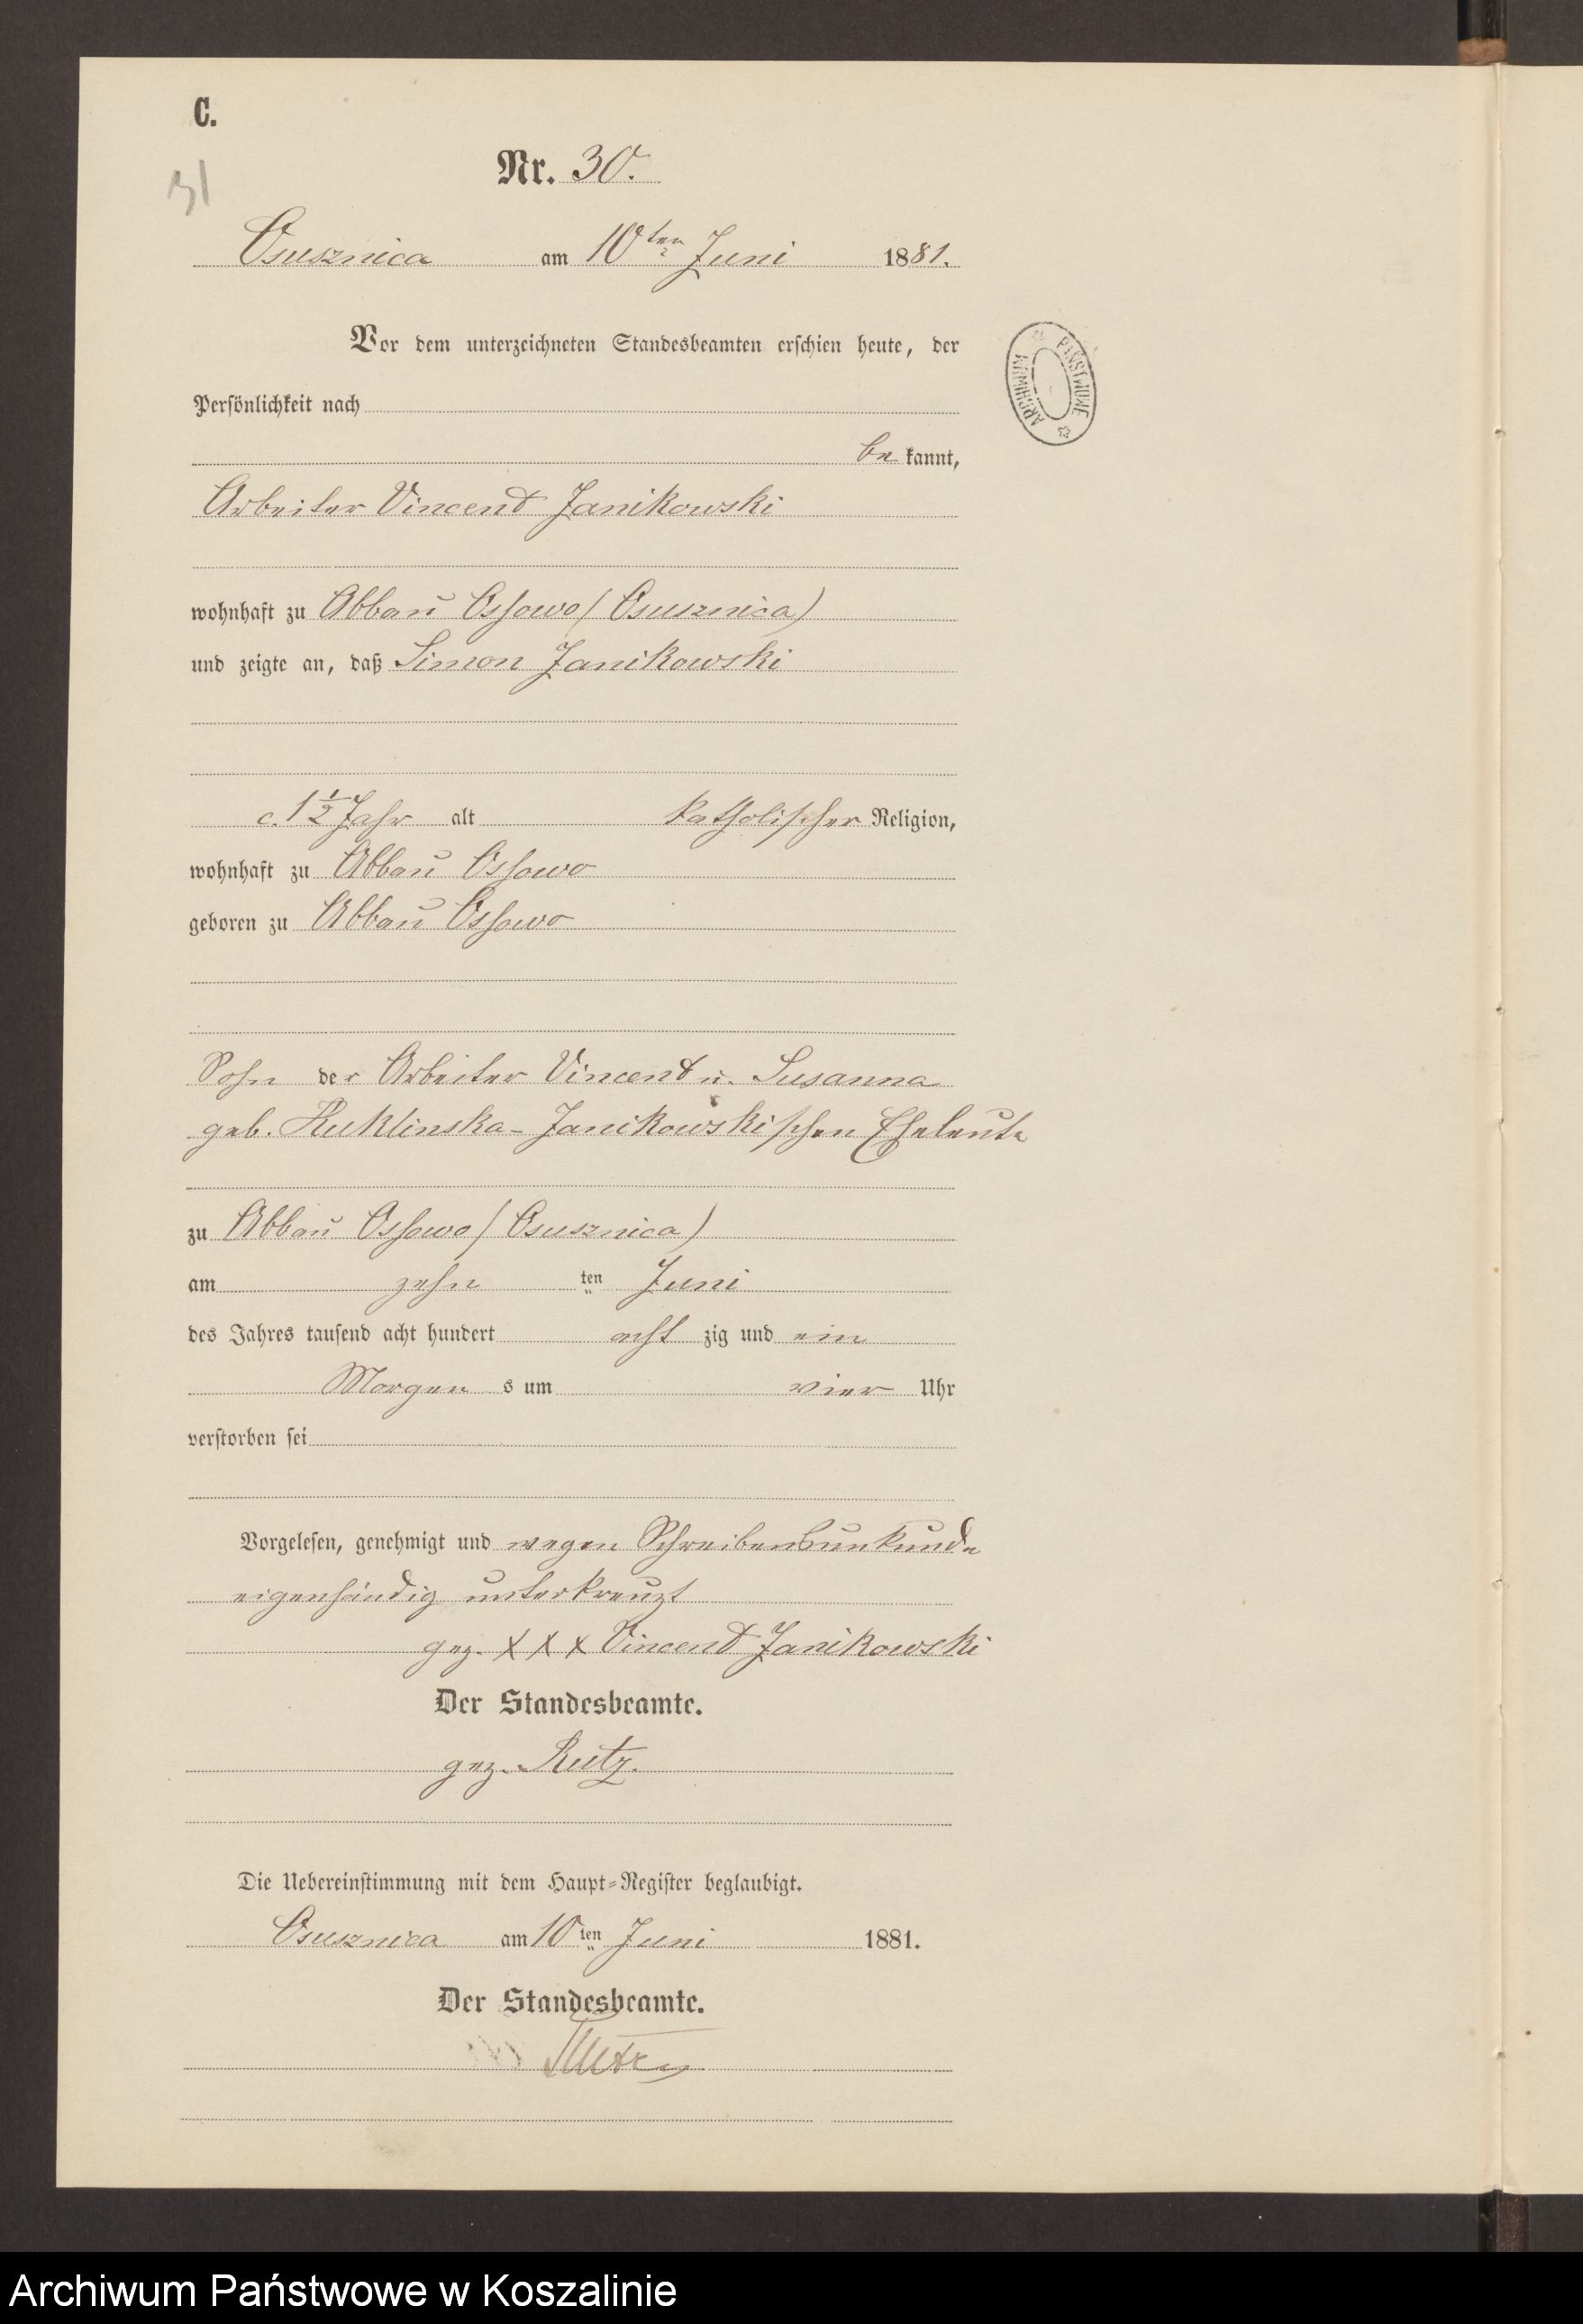 C.
31
Nr. 30.
Osusznica am 10ten Juni 1881.
Vor dem unterzeichneten Standesbeamten erschien heute, der
Persönlichkeit nach
be kannt,
Arbeiter Vincent Janikowski
wohnhaft zu Abbau Ossowo (Osusznica)
und zeigte an, daß Simon Janikowski
c. 1 1/2 Jahr alt katholischer Religion,
wohnhaft zu Abbau Ossowo
geboren zu Abbau Ossowo
Sohn der Arbeiter Vincent u. Susanna
geb. Kuklinska-Janikowskischen Eheleute
zu Abbau Ossowo (Osusznica)
am zehn ten Juni
des Jahres tausend acht hundert acht zig und ein
Morgen s um vier Uhr
verstorben sei
Vorgelesen, genehmigt und wegen Schreibensunkunde
eigenhändig unterkreuzt
gez. X X X Vincent Janikowski
Der Standesbeamte.
gez. Rutz.
Die Uebereinstimmung mit dem Haupt-Register beglaubigt.
Osusznica am 10ten Juni 1881.
Der Standesbeamte.
Rutz
ARCHIWUM PAŃSTWOWE
Archiwum Państwowe w Koszalinie